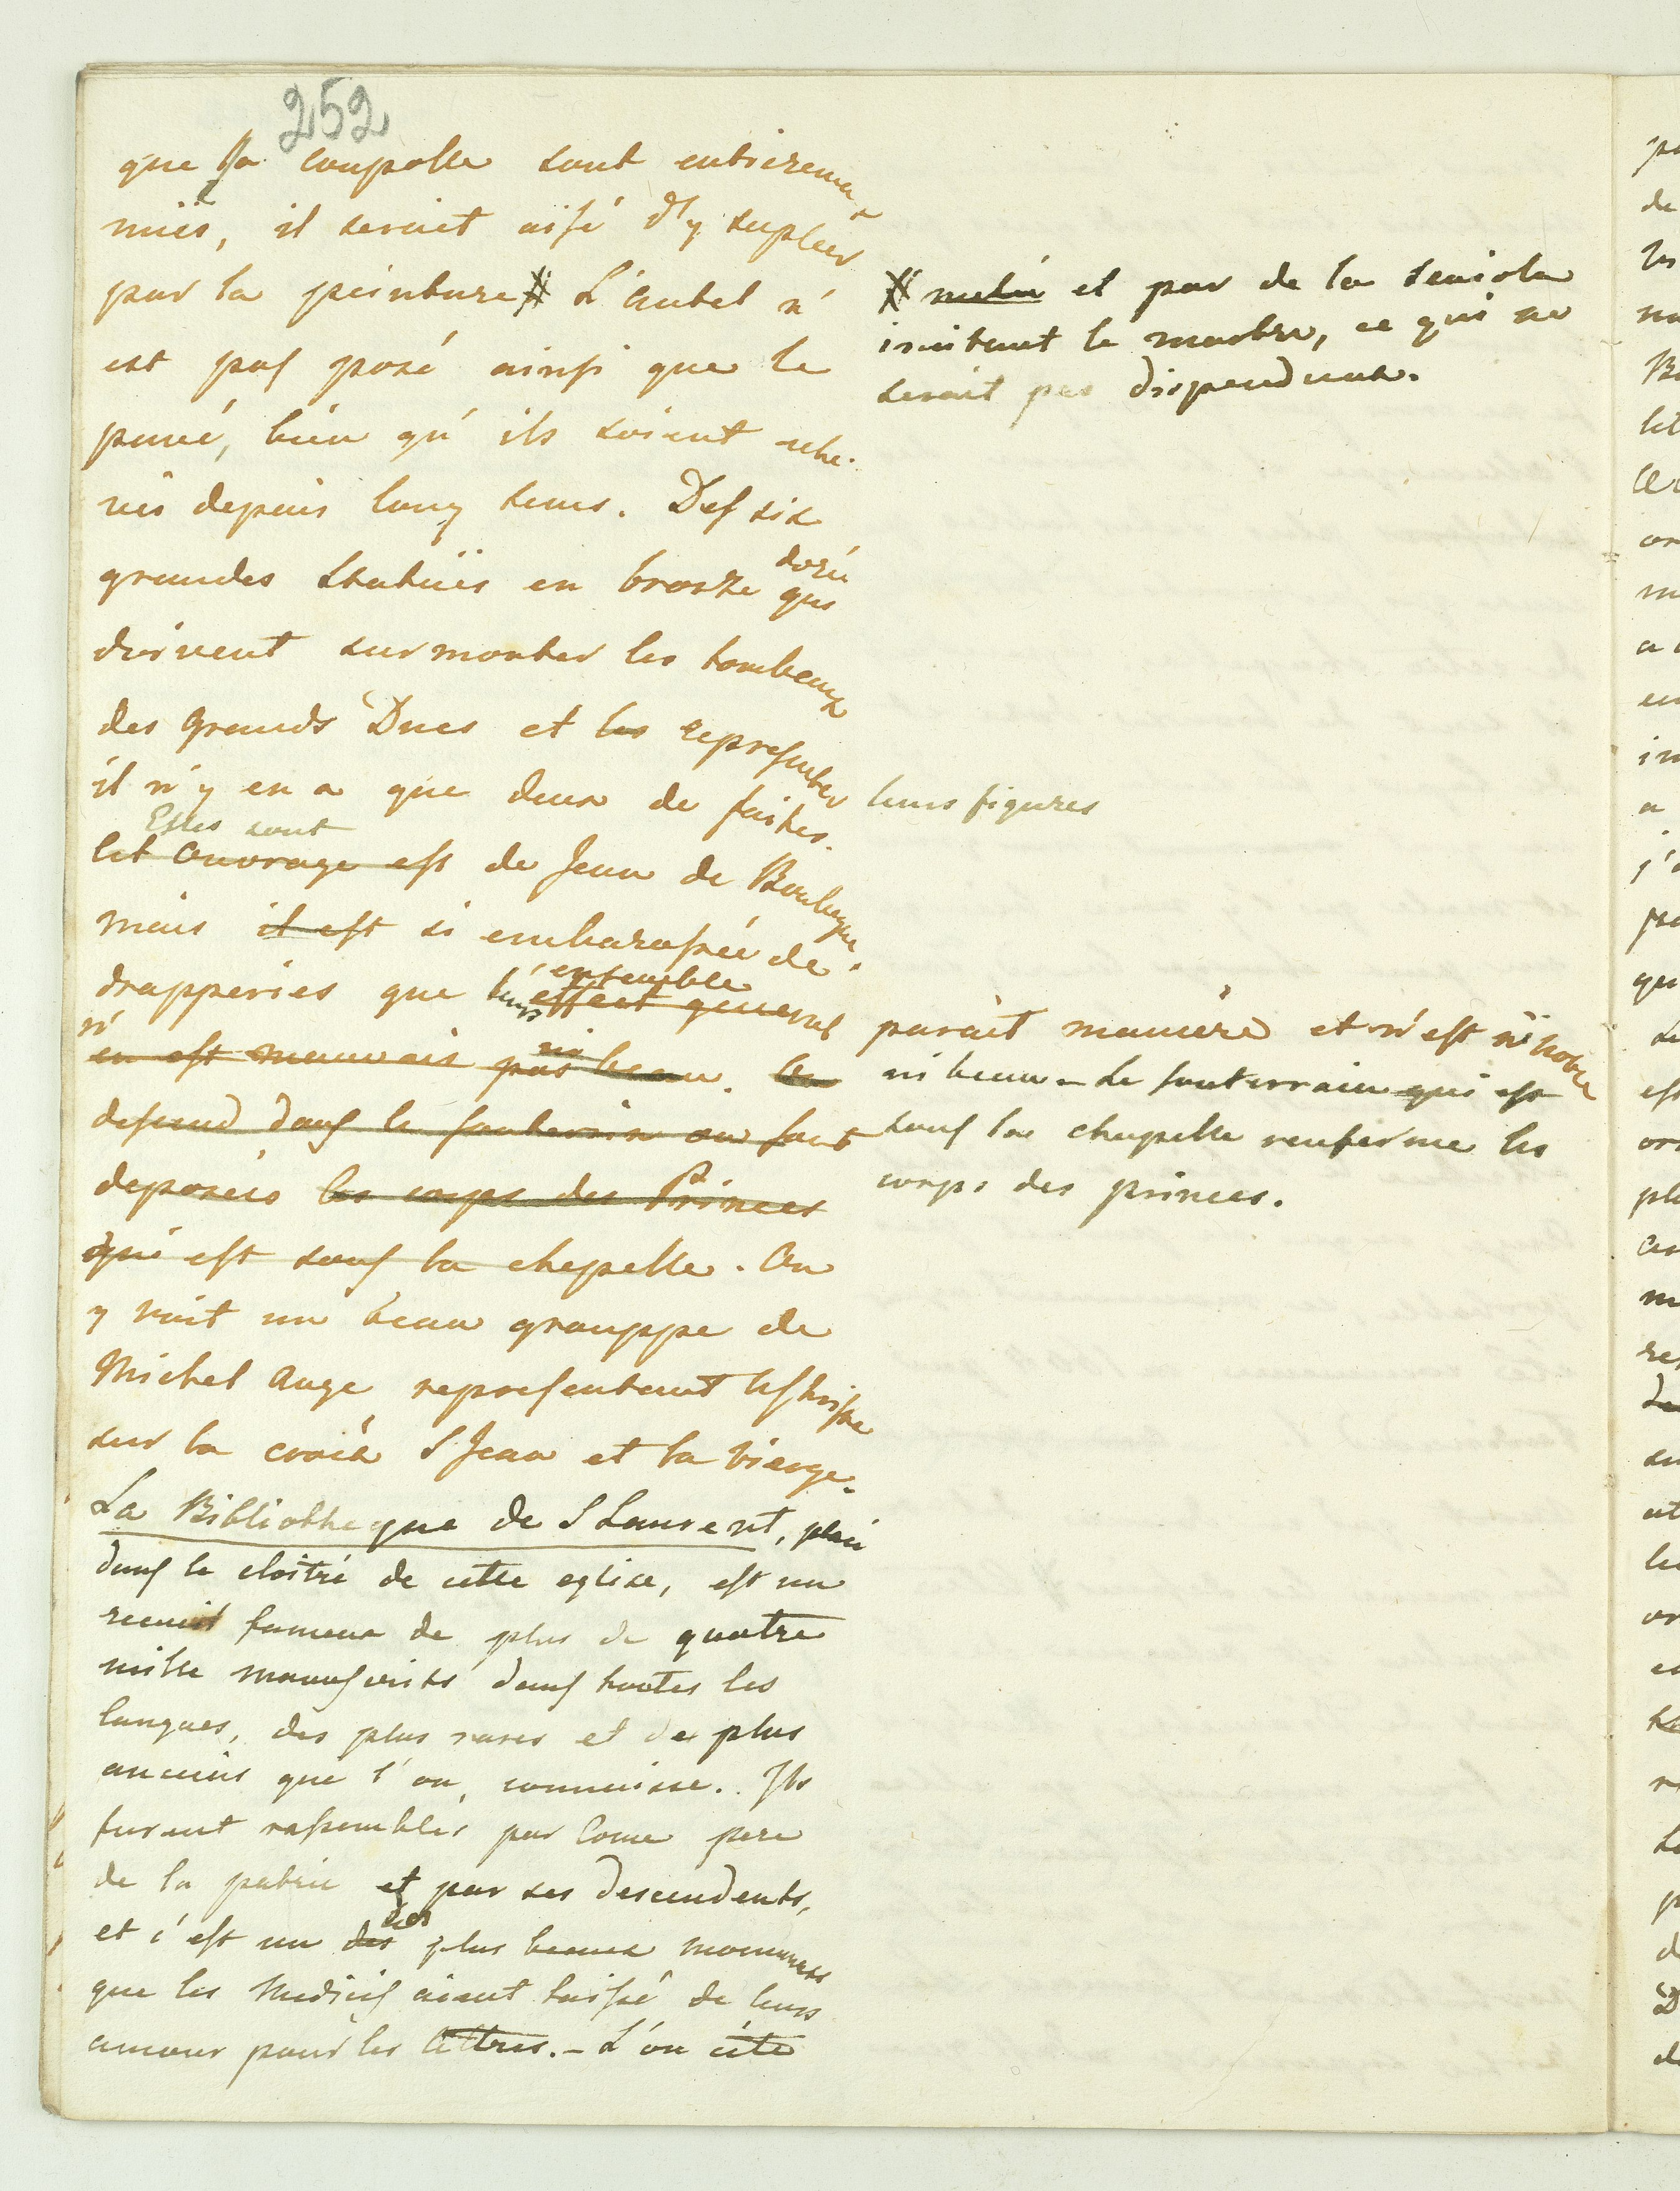 252
que la coupolle sont entierement
nües, il seroit aisé d'y supleer
par la peinture # L'autel n'
est pas posé ainsi que le
pavé, bien qu'ils soient ache-
vés depuis long tems. Des six
grandes statües en bronze doré qui
doivent surmonter les tombeaux
des Grands Ducs et les representer
il n'y en a que deux de faites.
Elles sont
Cet ouvrage est de Jean de Boulogne.
mais il est si embarassée de
ensemble
drapperies que leurs effect general
n'en est mauvais pas ni beau. On
descend dans le souterrain ou sont
deposées les corps des Princes
qui est sous la chapelle. On
y voit un beau grouppe de
Michel Ange representant le Christ
sur la croix S Jean et la Vierge.
La Bibliotheque de S Laurent, placé
dans le cloitre de cette eglise, est un
recueil fameux de plus de quatre
mille manuscrits dans toutes les
langues, des plus rares et des plus
anciens que l'on connoisse. Ils
furent rassemblés par Come pere
de la patrie et par ses descendents,
et c'est un des plus beaux monumens
que les Medicis aient laissé de leurs
amour pour les lettres. – L'on cite
# et par de la scaiola
imitant le marbre, ce qui ne
seroit pas dispendieux.
leurs figures
parait manieré et n'est ni noble
ni beau – Le souterrain qui est
sous la chapelle renferme les
corps des princes.